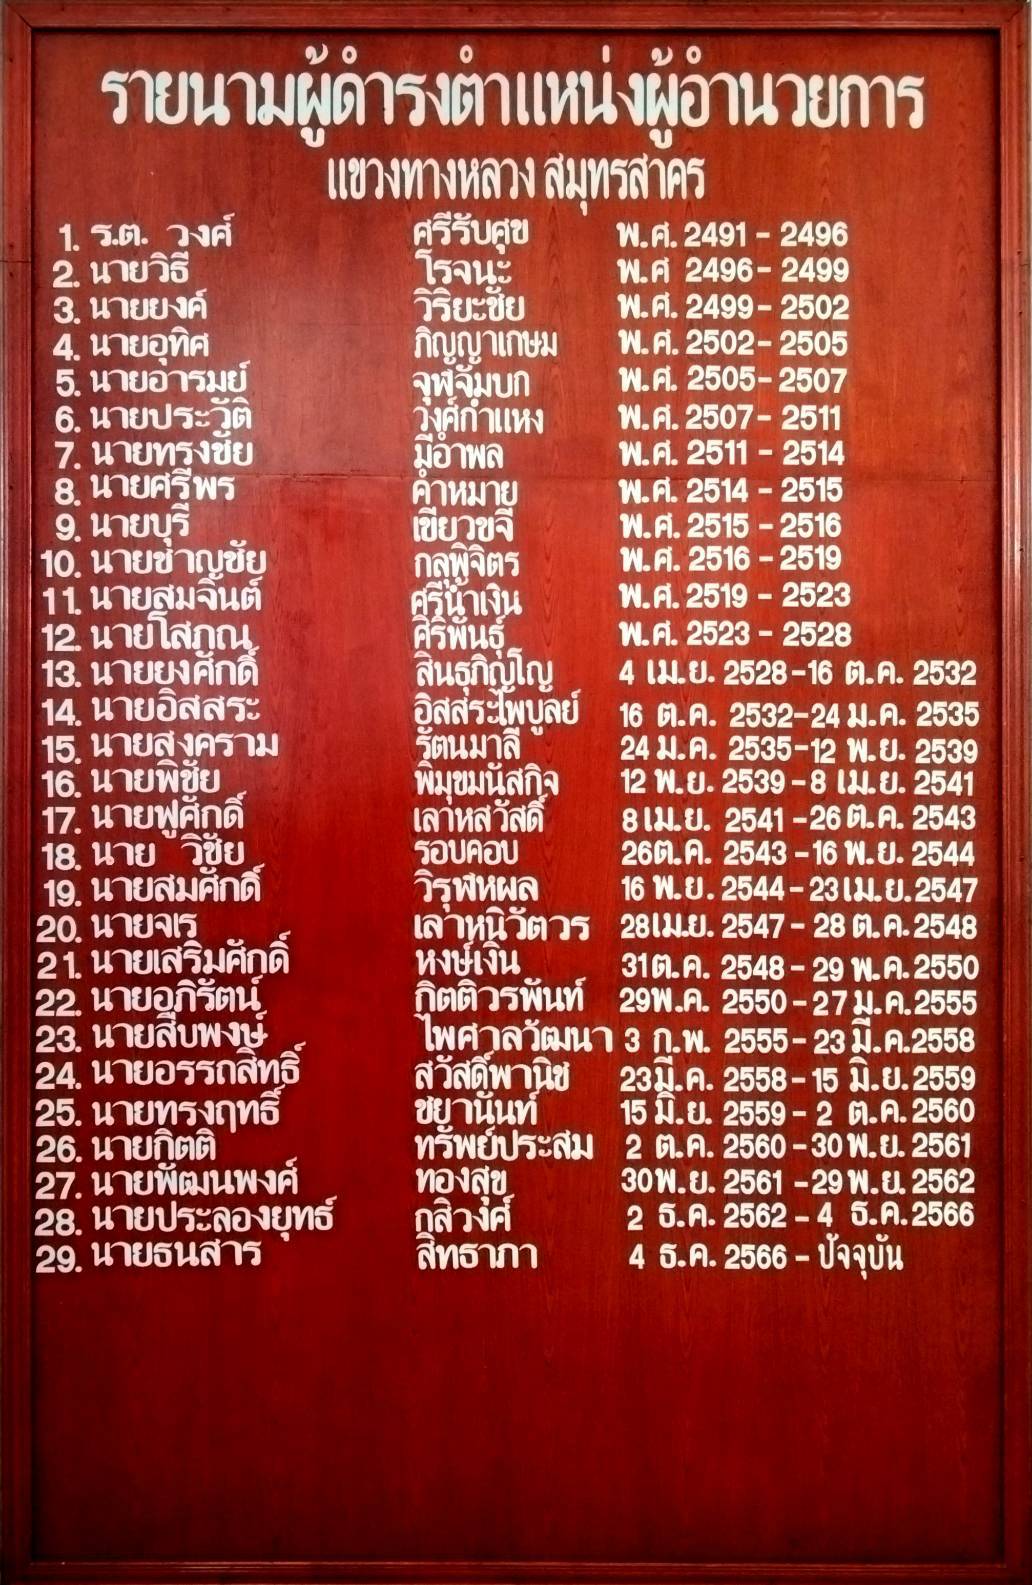 รายนามผู้ดำรงตำแหน่งผู้อำนวยการ
แขวงทางหลวง สมุทรสาคร
1. ร.ต. วงศ์ ศรีรับศุข พ.ศ. 2491 - 2496
2. นายวิธี โรจนะ พ.ศ 2496 - 2499
3. นายยงค์ วิริยะชัย พ.ศ. 2499 - 2502
4. นายอุทิศ ภิญญาเกษม พ.ศ. 2502 - 2505
5. นายอารมย์ จุฬจัมบก พ.ศ. 2505 - 2507
6. นายประวัติ วงศ์กำแหง พ.ศ. 2507 - 2511
7. นายทรงชัย มีอำพล พ.ศ. 2511 - 2514
8. นายศรีพร คำหมาย พ.ศ. 2514 - 2515
9. นายบุรี เขียวขจี พ.ศ. 2515 - 2516
10. นายชาญชัย กลพิจิตร พ.ศ. 2516 - 2519
11. นายสมจินต์ ศรีน้ำเงิน พ.ศ. 2519 - 2523
12. นายโสภณ ศิริพันธุ์ พ.ศ. 2523 - 2528
13. นายยงศักดิ์ สินธุภิญโญ 4 เม.ย. 2528 - 16 ต.ค. 2532
14. นายอิสสระ อิสสระไพบูลย์ 16 ต.ค. 2532 - 24 ม.ค. 2535
15. นายสงคราม รัตนมาลี 24 ม.ค. 2535 - 12 พ.ย. 2539
16. นายพิชัย พิมุขมนัสกิจ 12 พ.ย. 2539 - 8 เม.ย. 2541
17. นายฟูศักดิ์ เลาหสวัสดิ์ 8 เม.ย. 2541 - 26 ต.ค. 2543
18. นาย วิชัย รอบคอบ 26 ต.ค. 2543 - 16 พ.ย. 2544
19. นายสมศักดิ์ วิรุฬหผล 16 พ.ย. 2544 - 23 เม.ย. 2547
20. นายจเร เลาหนิวัตวร 28 เม.ย. 2547 - 28 ต.ค. 2548
21. นายเสริมศักดิ์ หงษ์เงิน 31 ต.ค. 2548 - 29 พ.ค. 2550
22. นายอภิรัตน์ กิตติวรพันท์ 29 พ.ค. 2550 - 27 ม.ค. 2555
23. นายสืบพงษ์ ไพศาลวัฒนา 3 ก.พ. 2555 - 23 มี.ค. 2558
24. นายอรรถสิทธิ์ สวัสดิ์พานิช 23 มี.ค. 2558 - 15 มิ.ย. 2559
25. นายทรงฤทธิ์ ชยานันท์ 15 มิ.ย. 2559 - 2 ต.ค. 2560
26. นายกิตติ ทรัพย์ประสม 2 ต.ค. 2560 - 30 พ.ย. 2561
27. นายพัฒนพงศ์ ทองสุข 30 พ.ย. 2561 - 29 พ.ย. 2562
28. นายประลองยุทธ์ กสิวงศ์ 2 ธ.ค. 2562 - 4 ธ.ค. 2566
29. นายธนสาร สิทธาภา 4 ธ.ค. 2566 - ปัจจุบัน